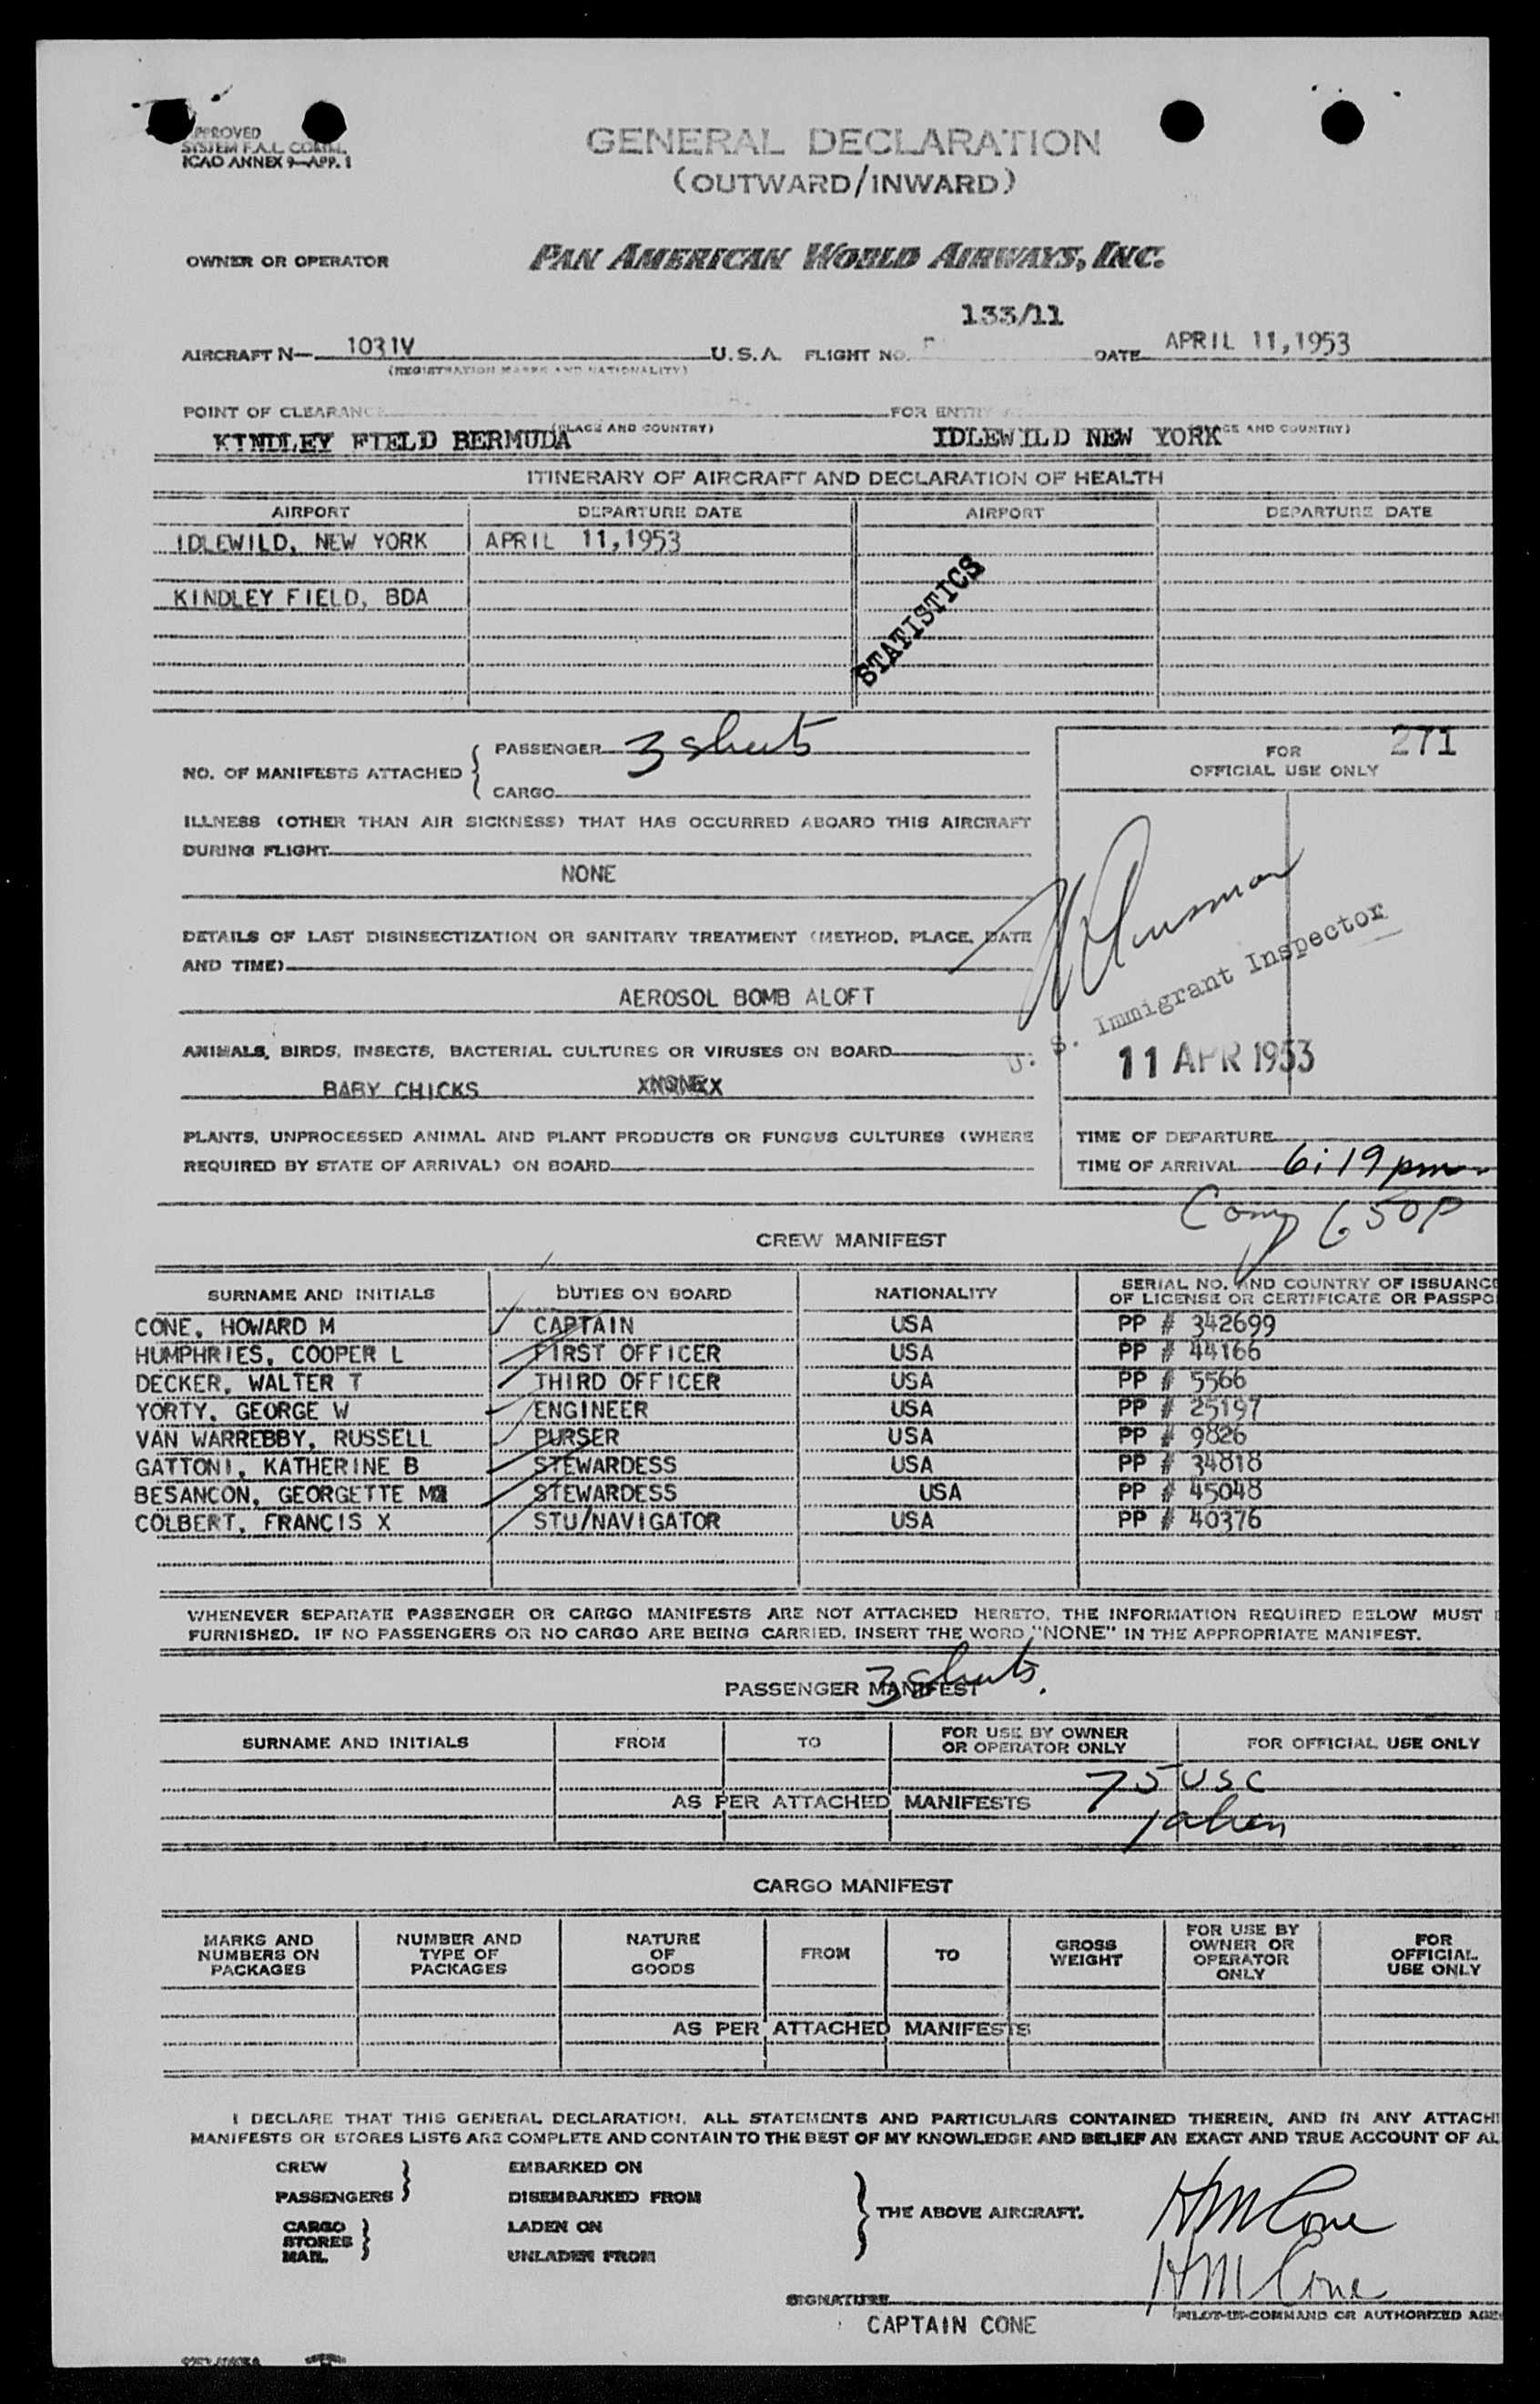 APPROVED
SYSTEM F.A.L. COMM.
ICAO ANNEX 9—APP. 1
GENERAL DECLARATION
(OUTWARD/INWARD)
OWNER OR OPERATOR PAN AMERICAN WORLD AIRWAYS, INC.
133/11
AIRCRAFT N— 1031V U.S.A. FLIGHT NO. DATE APRIL 11,1953
(REGISTRATION MARKS AND NATIONALITY)
POINT OF CLEARANCE FOR ENTRY
(PLACE AND COUNTRY)
KINDLEY FIELD BERMUDA IDLEWILD NEW YORK AND COUNTRY)
ITINERARY OF AIRCRAFT AND DECLARATION OF HEALTH
AIRPORT DEPARTURE DATE AIRPORT DEPARTURE DATE
IDLEWILD, NEW YORK APRIL 11,1953
KINDLEY FIELD, BDA
STATISTICS
NO. OF MANIFESTS ATTACHED { PASSENGER 3 sheets
CARGO
FOR 271
OFFICIAL USE ONLY
ILLNESS (OTHER THAN AIR SICKNESS) THAT HAS OCCURRED ABOARD THIS AIRCRAFT
DURING FLIGHT
NONE
DETAILS OF LAST DISINSECTIZATION OR SANITARY TREATMENT (METHOD, PLACE, DATE
AND TIME)
AEROSOL BOMB ALOFT
U. S. Immigrant Inspector
11 APR 1953
ANIMALS, BIRDS, INSECTS, BACTERIAL CULTURES OR VIRUSES ON BOARD
BABY CHICKS XNONEXX
PLANTS, UNPROCESSED ANIMAL AND PLANT PRODUCTS OR FUNGUS CULTURES (WHERE
REQUIRED BY STATE OF ARRIVAL) ON BOARD
TIME OF DEPARTURE
TIME OF ARRIVAL 6:19 pm.
Comp 650P
CREW MANIFEST
SURNAME AND INITIALS DUTIES ON BOARD NATIONALITY SERIAL NO. AND COUNTRY OF ISSUANCE
OF LICENSE OR CERTIFICATE OR PASSPO
CONE, HOWARD M CAPTAIN USA PP # 342699
HUMPHRIES, COOPER L FIRST OFFICER USA PP # 44166
DECKER, WALTER T THIRD OFFICER USA PP # 5566
YORTY, GEORGE W ENGINEER USA PP # 25197
VAN WARREBBY, RUSSELL PURSER USA PP # 9826
GATTONI, KATHERINE B STEWARDESS USA PP # 34818
BESANCON, GEORGETTE M STEWARDESS USA PP # 45048
COLBERT, FRANCIS X STU/NAVIGATOR USA PP # 40376
WHENEVER SEPARATE PASSENGER OR CARGO MANIFESTS ARE NOT ATTACHED HERETO, THE INFORMATION REQUIRED BELOW MUST
FURNISHED. IF NO PASSENGERS OR NO CARGO ARE BEING CARRIED, INSERT THE WORD "NONE" IN THE APPROPRIATE MANIFEST.
PASSENGER MANIFEST 3 sheets.
SURNAME AND INITIALS FROM TO FOR USE BY OWNER OR OPERATOR ONLY FOR OFFICIAL USE ONLY
75 USC
AS PER ATTACHED MANIFESTS
1 alien
CARGO MANIFEST
MARKS AND NUMBERS ON PACKAGES NUMBER AND TYPE OF PACKAGES NATURE OF GOODS FROM TO GROSS WEIGHT FOR USE BY OWNER OR OPERATOR ONLY FOR OFFICIAL USE ONLY
AS PER ATTACHED MANIFESTS
I DECLARE THAT THIS GENERAL DECLARATION, ALL STATEMENTS AND PARTICULARS CONTAINED THEREIN, AND IN ANY ATTACH
MANIFESTS OR STORES LISTS ARE COMPLETE AND CONTAIN TO THE BEST OF MY KNOWLEDGE AND BELIEF AN EXACT AND TRUE ACCOUNT OF AL
CREW EMBARKED ON
PASSENGERS DISEMBARKED FROM
CARGO LADEN ON THE ABOVE AIRCRAFT.
STORES
MAIL UNLADEN FROM
HM Cone
HM Cone
SIGNATURE
(PILOT-IN-COMMAND OR AUTHORIZED AGE
CAPTAIN CONE